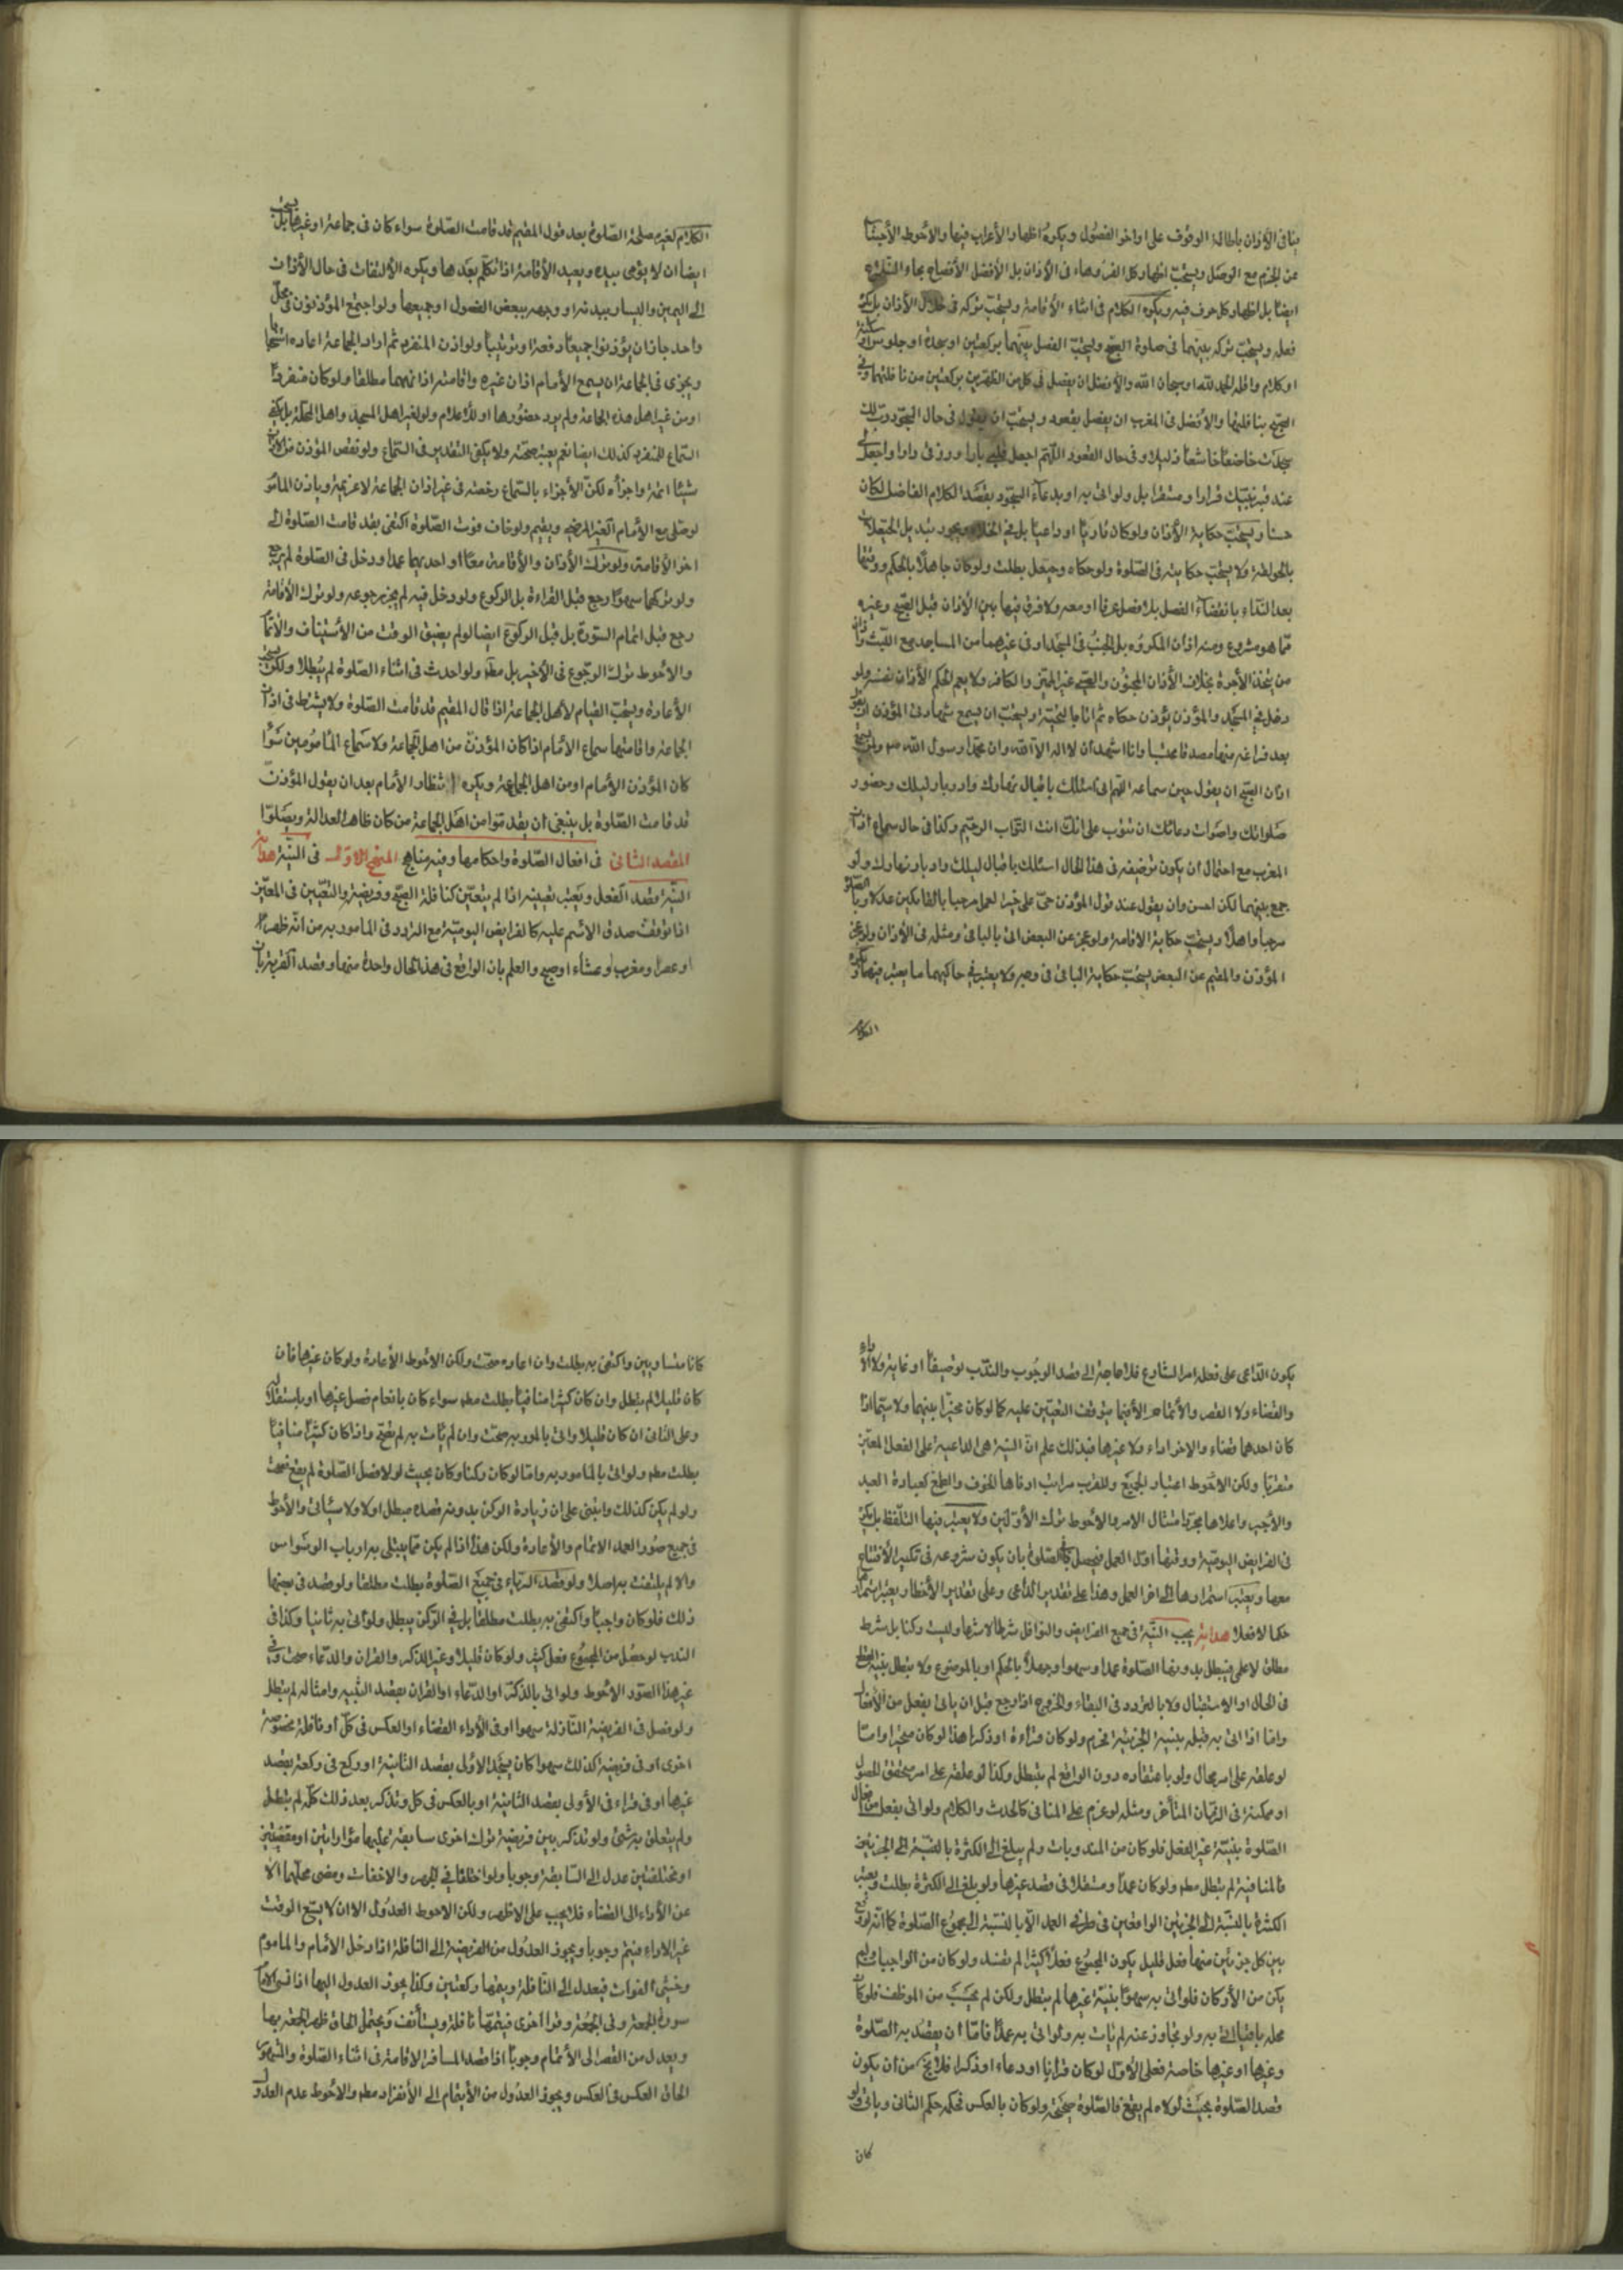 ينافى الأذان باطالة الوقوف على اواخر الفصول ويكره اظهار الأعراب فيها والأحوط الأجتناب
عن الجزم مع الوصل ويستحب اظهار كل الف وهاء فى الأذان بل الأفضل الأفصاح بحاء الفلاح
ايضا بل اظهار كل حرف فيه ويكره الكلام فى اثناء الأقامة ويستحب تركه فى خلال الأذان بل يكره
فعله ويستحب تركه بينهما فى صلوة الصبح ويستحب الفصل بينهما بركعتين او سجدة او جلوس او
او كلام واقله الحمد لله او سبحان الله والأفضل ان يفصل فى كل من الظهرين بركعتين من نافلتهما وفى
الصبح بنافلتها والأفضل فى المغرب ان يفصل بقعود ويستحب ان يقول فى حال السجود رب لك
سجدت خاضعا خاشعا ذليلا وفى حال القعود اللهم اجعل قلبى بارا ورزقى دارا واجعل لى
عند قبر نبيك قرارا ومستقرا بل ولو اتى به او بدعاء السجود بقصد الكلام الفاضل لكان
حسنا ويستحب حكاية الأذان ولو كان قاريا او داعيا بل فى الخلاء ويجوز تبديل الحيعلات
بالحولقة ولا يستحب حكايته فى الصلوة ولو حكاه وحيعل بطلت ولو كان جاهلا بالحكم ووقتها
بعد النداء بانقضاء الفصل بلا فصل عرفا او معه ولا فرق فيها بين الأذان قبل الصبح وغيره
مما هو مشروع ومنه اذان المكروه بل الجنب فى المسجد او فى غيرهما من المساجد مع اللبث واذان
من يتخذ الأجرة بخلاف اذان المجنون والصبى غير المميز والكافر ولا يعم الحكم الأذان نفسه ولو
دخل فى المسجد والمؤذن يؤذن حكاه ثم اتى بالتحية ويستحب ان يسمع شهادتى المؤذن ان يقول
بعد فراغه منها مصدقا محتسبا وانا اشهد ان لا اله الا الله وان محمدا رسول الله ص ولمن يسمع
اذان الصبح ان يقول حين سماعه اللهم انى اسئلك باقبال نهارك وادبار ليلك وحضور
صلواتك واصوات دعائك ان تتوب على انك انت التواب الرحيم وكذا فى حال سماع اذان
المغرب مع احتمال ان يكون توضيفه فى هذا الحال اسئلك باقبال ليلك وادبار نهارك ولو
جمع بينهما لكن احسن وان يقول عند قول المؤذن حى على خير العمل مرحبا بالقائلين عدلا وبالصلوة
مرحبا واهلا ويستحب حكاية الاقامة ولو عجز عن البعض اتى بالباقى ومثله فى الأذان ولو عجز
المؤذن والمقيم عن البعض يستحب حكاية الباقى فى وجه ولا يعتبر فى حاكيهما ما يعتبر فيهما ويكره
الكلام
الكلام لغير مصلحة الصلوة بعد قول المقيم قد قامت الصلوة سواء كان فى جماعة او غيرها بل يستحب
ايضا ان لا يؤمى بيده ويعيد الأقامة اذا تكلم بعدها ويكره الألتفات فى حال الأذان
الى اليمين واليسار ببدنه او وجهه ببعض الفصول او جميعها ولو اجتمع المؤذنون فى محل
واحد جاز ان يؤذنوا جميعا دفعة او ترتيبا ولو اذن المنفرد ثم اراد الجماعة اعاده استحبابا
ويجزى فى الجماعة ان يسمع الأمام اذان غيره واقامته اذا تمهما مطلقا ولو كان منفردا
او من غير اهل هذه الجماعة ولم يرد حضورها او للأعلام ولو لغير اهل المسجد واهل المحلة بل يكفى
السماع للمنفرد كذلك ايضا نعم يعتبر صحته ولا يكفى التقدير فى السماع ولو نقص المؤذن من الاذان
شيئا اتمه واجزأه لكن الأجزاء بالسماع رخصة فى غير اذان الجماعة لا عزيمة ويأذن المأموم
لو صلى مع الأمام الغير المرضى ويقيم ولو خاف فوت الصلوة اكتفى بقد قامت الصلوة الى
اخر الأقامة ولو ترك الأذان والأقامة معا او احديهما عمدا ودخل فى الصلوة لم يرجع
ولو تركهما سهوا رجع قبل القراءة بل الركوع ولو دخل فيه لم يجز رجوعه ولو ترك الأقامة
رجع قبل اتمام السورة بل قبل الركوع ايضا لو لم يضيق الوقت من الأستيناف والأتمام
والاحوط ترك الرجوع فى الأخير بل مطلقا ولو احدث فى اثناء الصلوة لم يبطلا ولكن يستحب
الأعادة ويستحب القيام لأهل الجماعة اذا قال المقيم قد قامت الصلوة ولا يشترط فى اذان
الجماعة واقامتها سماع الأمام اذا كان المؤذن من اهل الجماعة ولا سماع المأمومين سواء
كان المؤذن الأمام او من اهل الجماعة ويكره انتظار الأمام بعد ان يقول المؤذن
قد قامت الصلوة بل ينبغى ان يقدموا من اهل الجماعة من كان ظاهر العدالة ويصلوا
المقصد الثانى فى افعال الصلوة واحكامها وفيه مناهج المنهج الاول فى النية هداية
النية قصد الفعل ويعتبر تعيينه اذا لم يتعين كنافلة الصبح وفريضته والتعيين فى المعين
اذا توقف صدق الاسم عليه كالفرايض اليومية مع التردد فى المامور به من انه ظهر او
او عصر او مغرب او عشاء او صبح والعلم بان الواقع فى هذا الحال واحدة منها وقصد القربة بان
يكون الداعى على فعله امر الشارع فلا حاجة الى قصد الوجوب والندب توصيفا او غاية ولا الاداء
والقضاء ولا القصر والأتمام الا فيما يتوقف التعيين عليه كما لو كان مخيرا بينهما ولا سيما اذا
كان احدهما قضاء والاخر اداء ولا غيرها فبذلك علم ان النية هى الداعية على الفعل المعين
متقربا ولكن الاحوط اعتبار الجميع وللقرب مراتب ادناها الخوف والطمع كعبادة العبد
والأجير واعلاها مجرد امتثال الامر والاحوط ترك الأولين ولا يعتبر فيها التلفظ بل يكره
فى الفرايض اليومية ووقتها اول العمل فيحصل فى الصلوة بان يكون شروعه فى تكبير الأفتتاح
معها ويعتبر استمرارها الى اخر العمل وهذا على تقدير الداعى وعلى تقدير الأخطار يعتبر استمرارها
حكما لا فعلا هداية يجب النية فى جميع الفرايض والنوافل شرطا لا شرعا وليست ركنا بل شرط
مطلق لا على فيبطل بدونها الصلوة عمدا وسهوا وجهلا بالحكم او بالموضوع ولا يبطل بنية القطع
فى الحال او الاستقبال ولا بالتردد فى البقاء والخروج اذا رجع قبل ان يأتى بفعل من الأفعال
واما اذا اتى به قبله بنية الجزئية فحرم ولو كان قراءة او ذكرا هذا لو كان منجزا واما
لو علقه على امر محال ولو باعتقاده دون الواقع لم يبطل وكذا لو علقه على امر متحقق الحصول
او ممكنة فى الزمان المتأخر ومثله لو عزم على المنافى كالحدث والكلام ولو اتى بفعل من افعال
الصلوة بنية غير الفعل فلو كان من المندوبات ولم يبلغ الى الكثرة بالنسبة الى الجزئين
فالمنافية لم يبطل مطلقا ولو كان عمدا ومستقلا فى قصد غيرها ولو بلغ الى الكثرة بطلت ويعتبر
الكثرة بالنسبة الى الجزئين الواقعين فى طرفى العمد الا بالنسبة الى مجموع الصلوة كما انه لو وقع
بين كل جزئين منهما فعل قليل يكون المجموع فعلا كثيرا لم تفسد ولو كان من الواجبات ولم
يكن من الأركان فلو اتى به سهوا بنية غيرها لم يبطل ولكن لم يحسب من الموظف فلو كان
محله باقيا اتى به ولو تجاوز عنه لم يأت به ولو اتى به عمدا فاما ان يقصد به الصلوة
وغيرها او غيرها خاصة فعلى الأول لو كان قرانا او دعاء او ذكرا فلا يخ من ان يكون
قصد الصلوة بحيث لولاه لم يقع فالصلوة صحيحة ولو كان بالعكس فحكمه حكم الثانى ويأتى ولو
كانا
كانا متساويين واكتفى به بطلت وان اعاده صحت ولكن الاحوط الأعادة ولو كان غيرها فان
كان قليلا لم يبطل وان كان كثيرا منافيا بطلت مطلقا سواء كان بانضمام فصل غيرها او باستقلاله
وعلى الثانى ان كان قليلا واتى بالمامور به صحت وان لم يأت به لم تصح واذا كان كثيرا منافيا
بطلت مطلقا ولو اتى بالمامور به واما لو كان ركنا وكان بحيث لولا قصد الصلوة لم يقع صحت
ولو لم يكن كذلك وابتنى على ان زيادة الركن بدون قصده مبطل او لا ولا سيأتى والأحوط
فى جميع صور العمد الاتمام والأعادة ولكن هذا اذا لم يكن مما يبتلى به ارباب الوسواس
والا لم يلتفت به اصلا ولو قصد الرياء فى جميع الصلوة بطلت مطلقا ولو قصد فى بعضها
ذلك فلو كان واجبا واكتفى به بطلت مطلقا بل فى الركن يبطل ولو اتى به ثانيا وكذا فى
الندب لو حصل من المجموع فعل كثير ولو كان قليلا وغير الذكر والقران والدعاء صحت وفى
غير هذا الصور الاحوط ولو اتى بالذكر او الدعاء او القران بقصد التنبيه وامثاله لم يبطل
ولو فصل فى الفريضة النافلة سهوا او فى الأداء القضاء او العكس فى كل او نافلة مخصوصة
اخرى او فى فريضة كذلك سهوا كان يسجد الاولى بقصد الثانية او ركع فى ركعة بقصد
غيرها او فى قراءة فى الأولى بقصد الثانية او بالعكس فى كل وتذكر بعد ذلك كله لم يبطل
ولم يتعلق به شئ ولو تذكر بين فريضة ترك اخرى سابقة عليها مؤداتين او مقضيتين
او مختلفتين عدل الى السابقة وجوبا ولو اختلفا فى الجهر والاخفات ومضى محلهما الا
عن الأداء الى القضاء فلا يجب على الاظهر ولكن الاحوط العدول الا ان لا يسع الوقت
غير الاداء فيتم وجوبا ويجوز العدول من الفريضة الى النافلة اذا دخل الأمام والماموم
وخشى الفوات فيعدل الى النافلة ويتمها ركعتين وكذا يجوز العدول اليها اذا نسى الامام
سورة الجمعة وفى الجمعة وقرا اخرى فيتمها نافلة ويستأنف ويحتمل الحاق ظهر الجمعة بها
ويعدل من القصر الى الأتمام وجوبا اذا قصد المسافر الاقامة فى اثناء الصلوة والمشهور
الحاق العكس فى العكس ويجوز العدول من الأيتمام الى الأنفراد مطلقا والاحوط عدم العدول